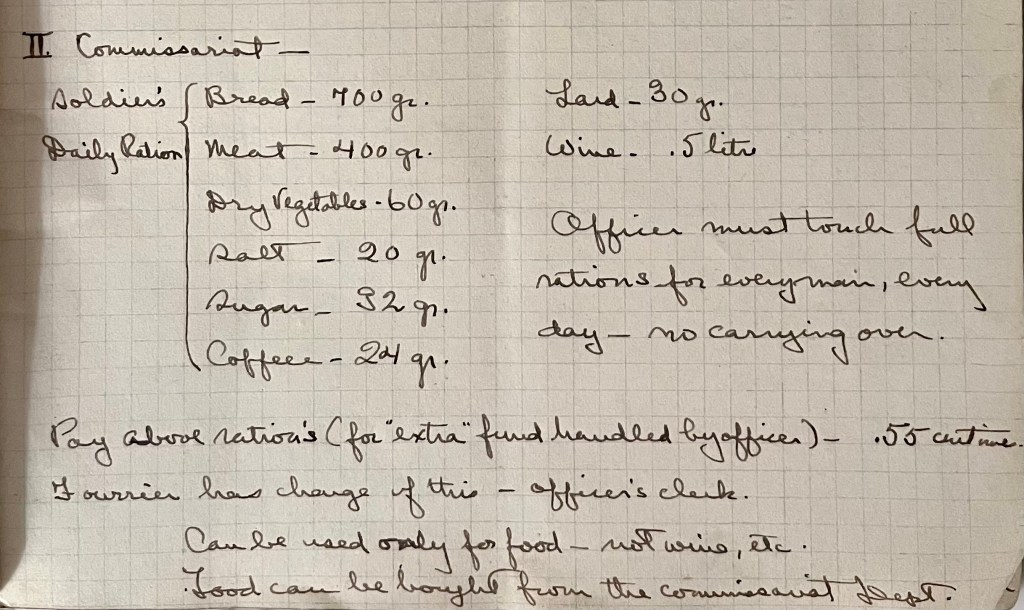 II. Commissariat —
Soldier's { Bread – 700 gr.
Daily Ration Meat – 400 gr.
Dry Vegetables - 60 gr.
Salt – 20 gr.
Sugar – 32 gr.
Coffeee – 24 gr.
Lard – 30 gr.
Wine - .5 litre
Officer must touch full
rations for every man, every
day – no carrying over.
Pay above ration's (for "extra" fund handled by officer) – .55 centime.
Fourrier has charge of this – officer's clerk.
Can be used only for food – not wine, etc.
Food can be bought from the commissariat Dept.